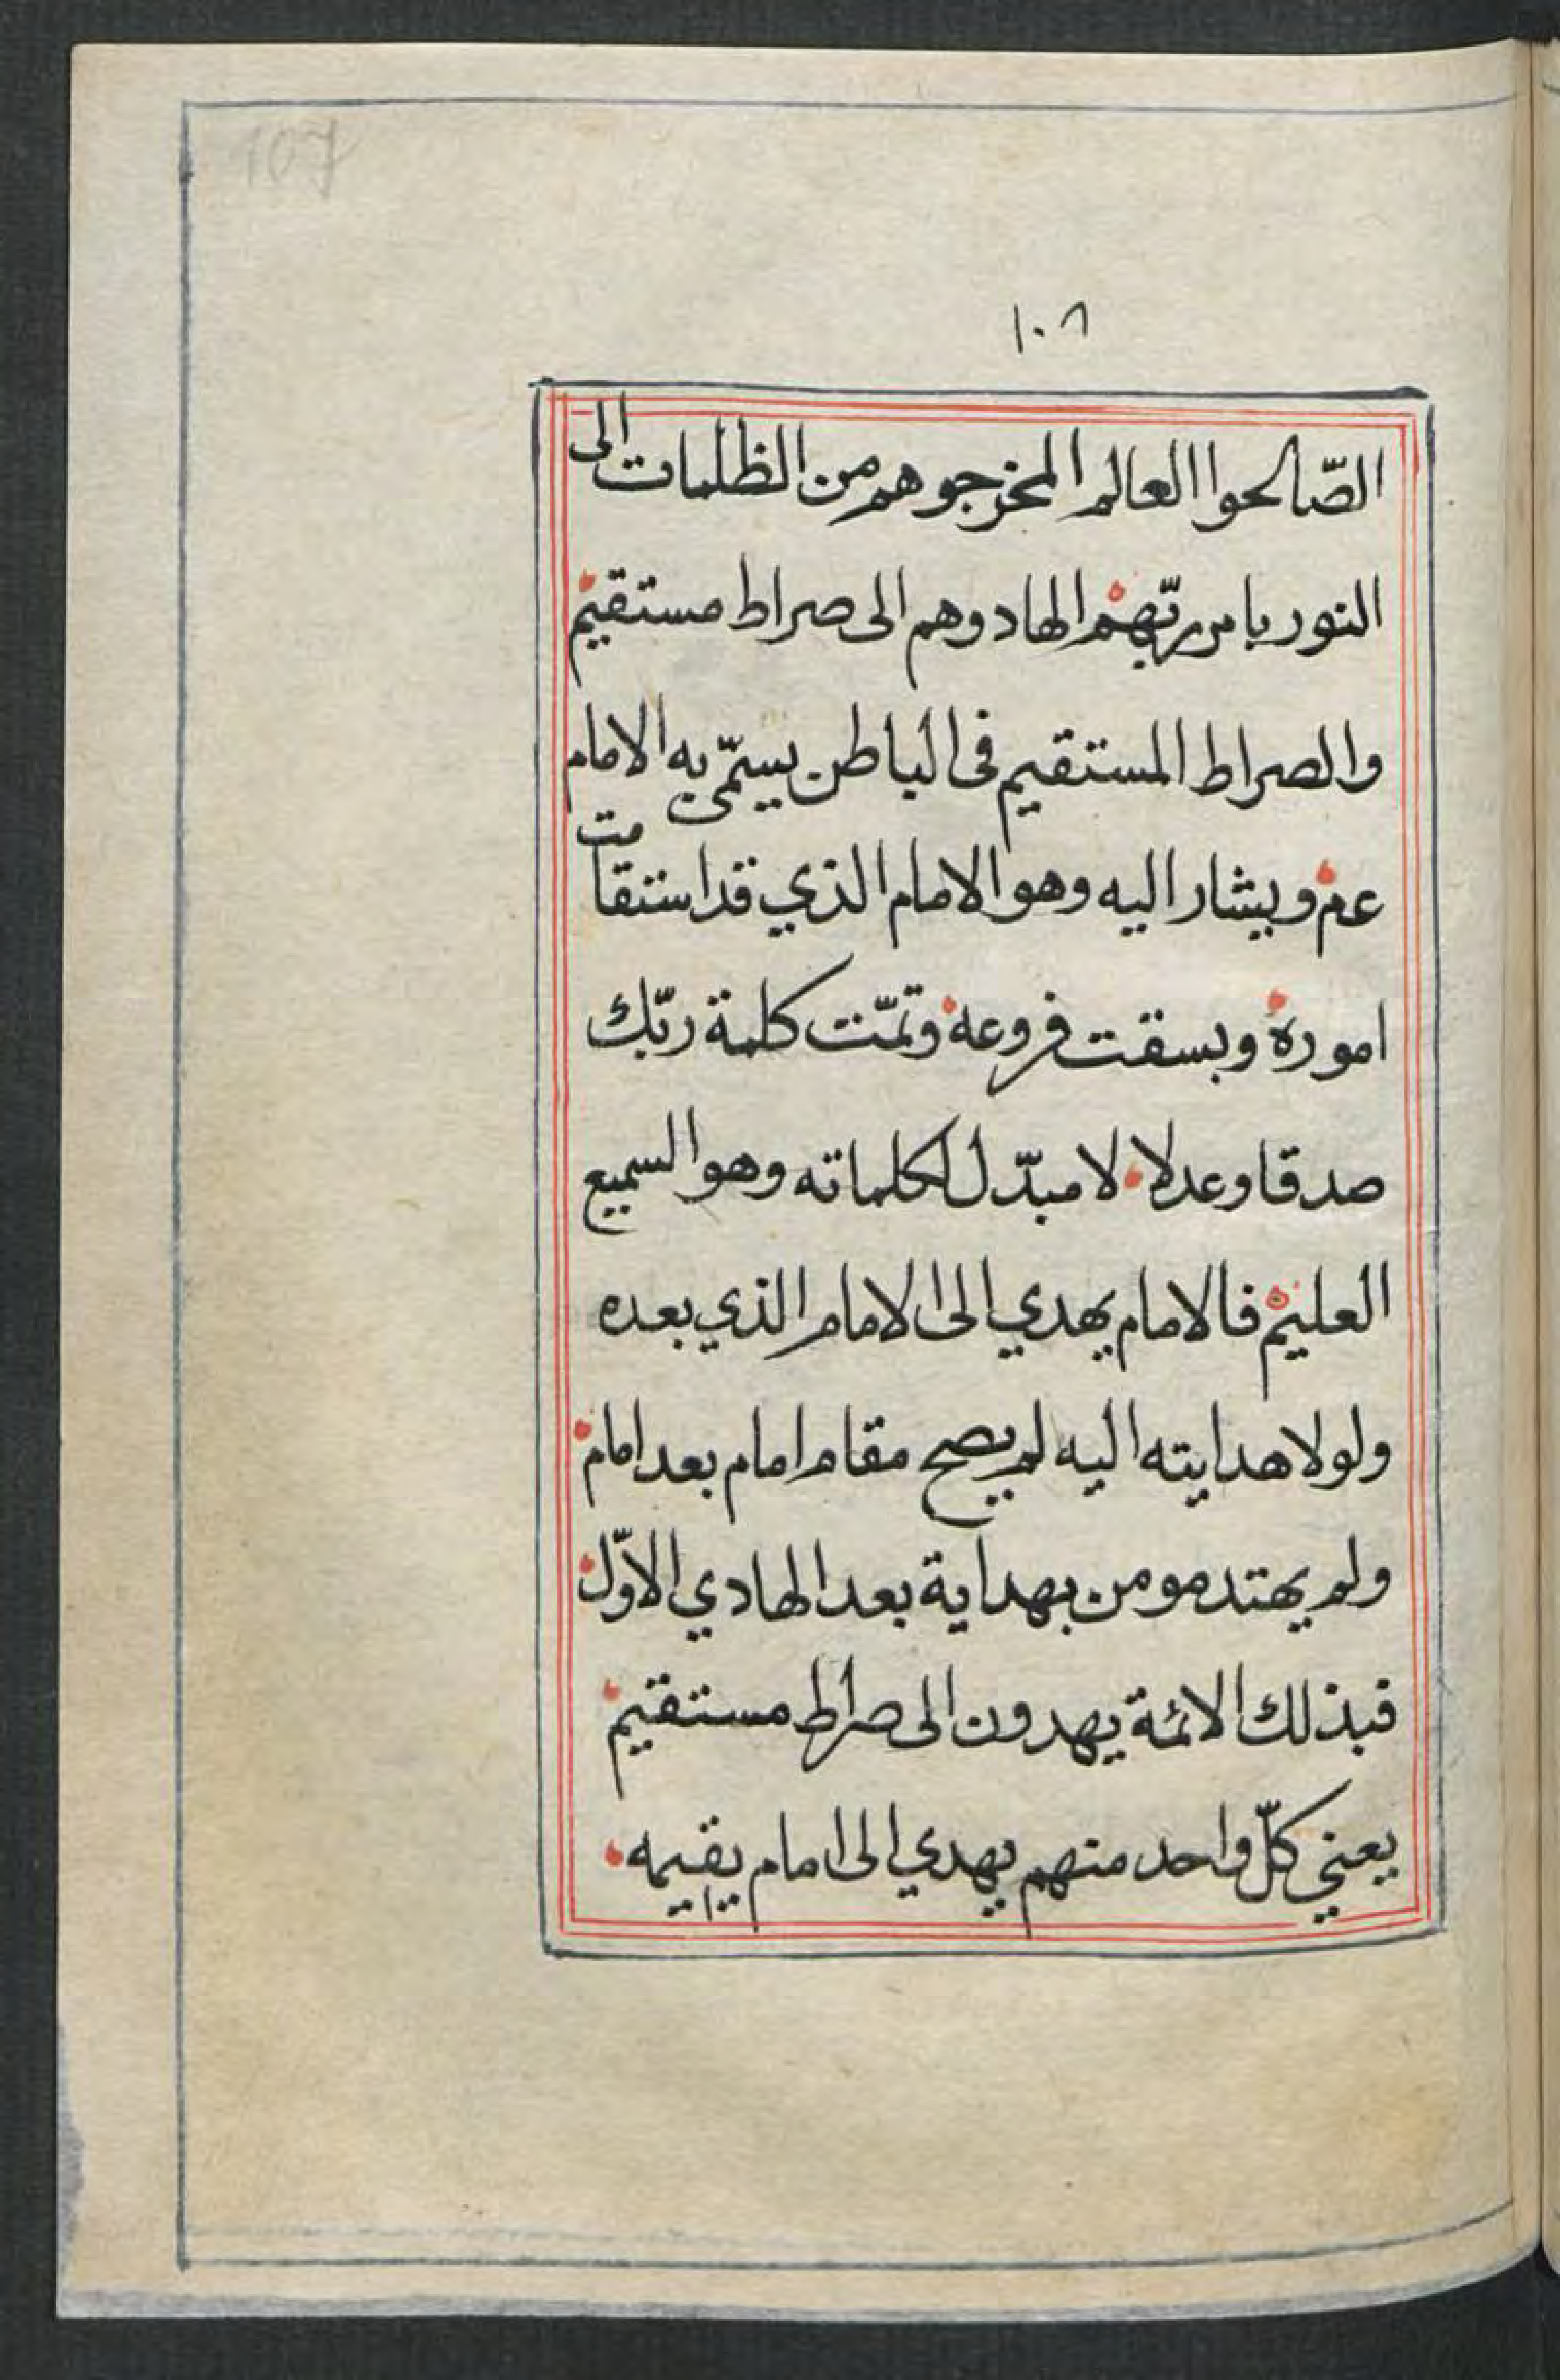 107
١٠٨
الصّالحوا العالم المخرجوهم من الظلمات الى
النور بامر ربّهم الهادوهم الى صراط مستقيم
والصراط المستقيم فى الباطن يسمّى به الامام
عم ويشار اليه وهو الامام الذي قد استقامت
اموره وبسقت فروعه وتمّت كلمة ربّك
صدقا وعدلا لا مبدّل لكلماته وهو السميع
العليم فالامام يهدي الى الامام الذي بعده
ولولا هدايته اليه لم يصح مقام امام بعد امام
ولم يهتد مومن بهداية بعد الهادي الاوّل
فبذلك الائمة يهدون الى صراط مستقيم
يعني كلّ واحد منهم يهدي الى امام يقيمه